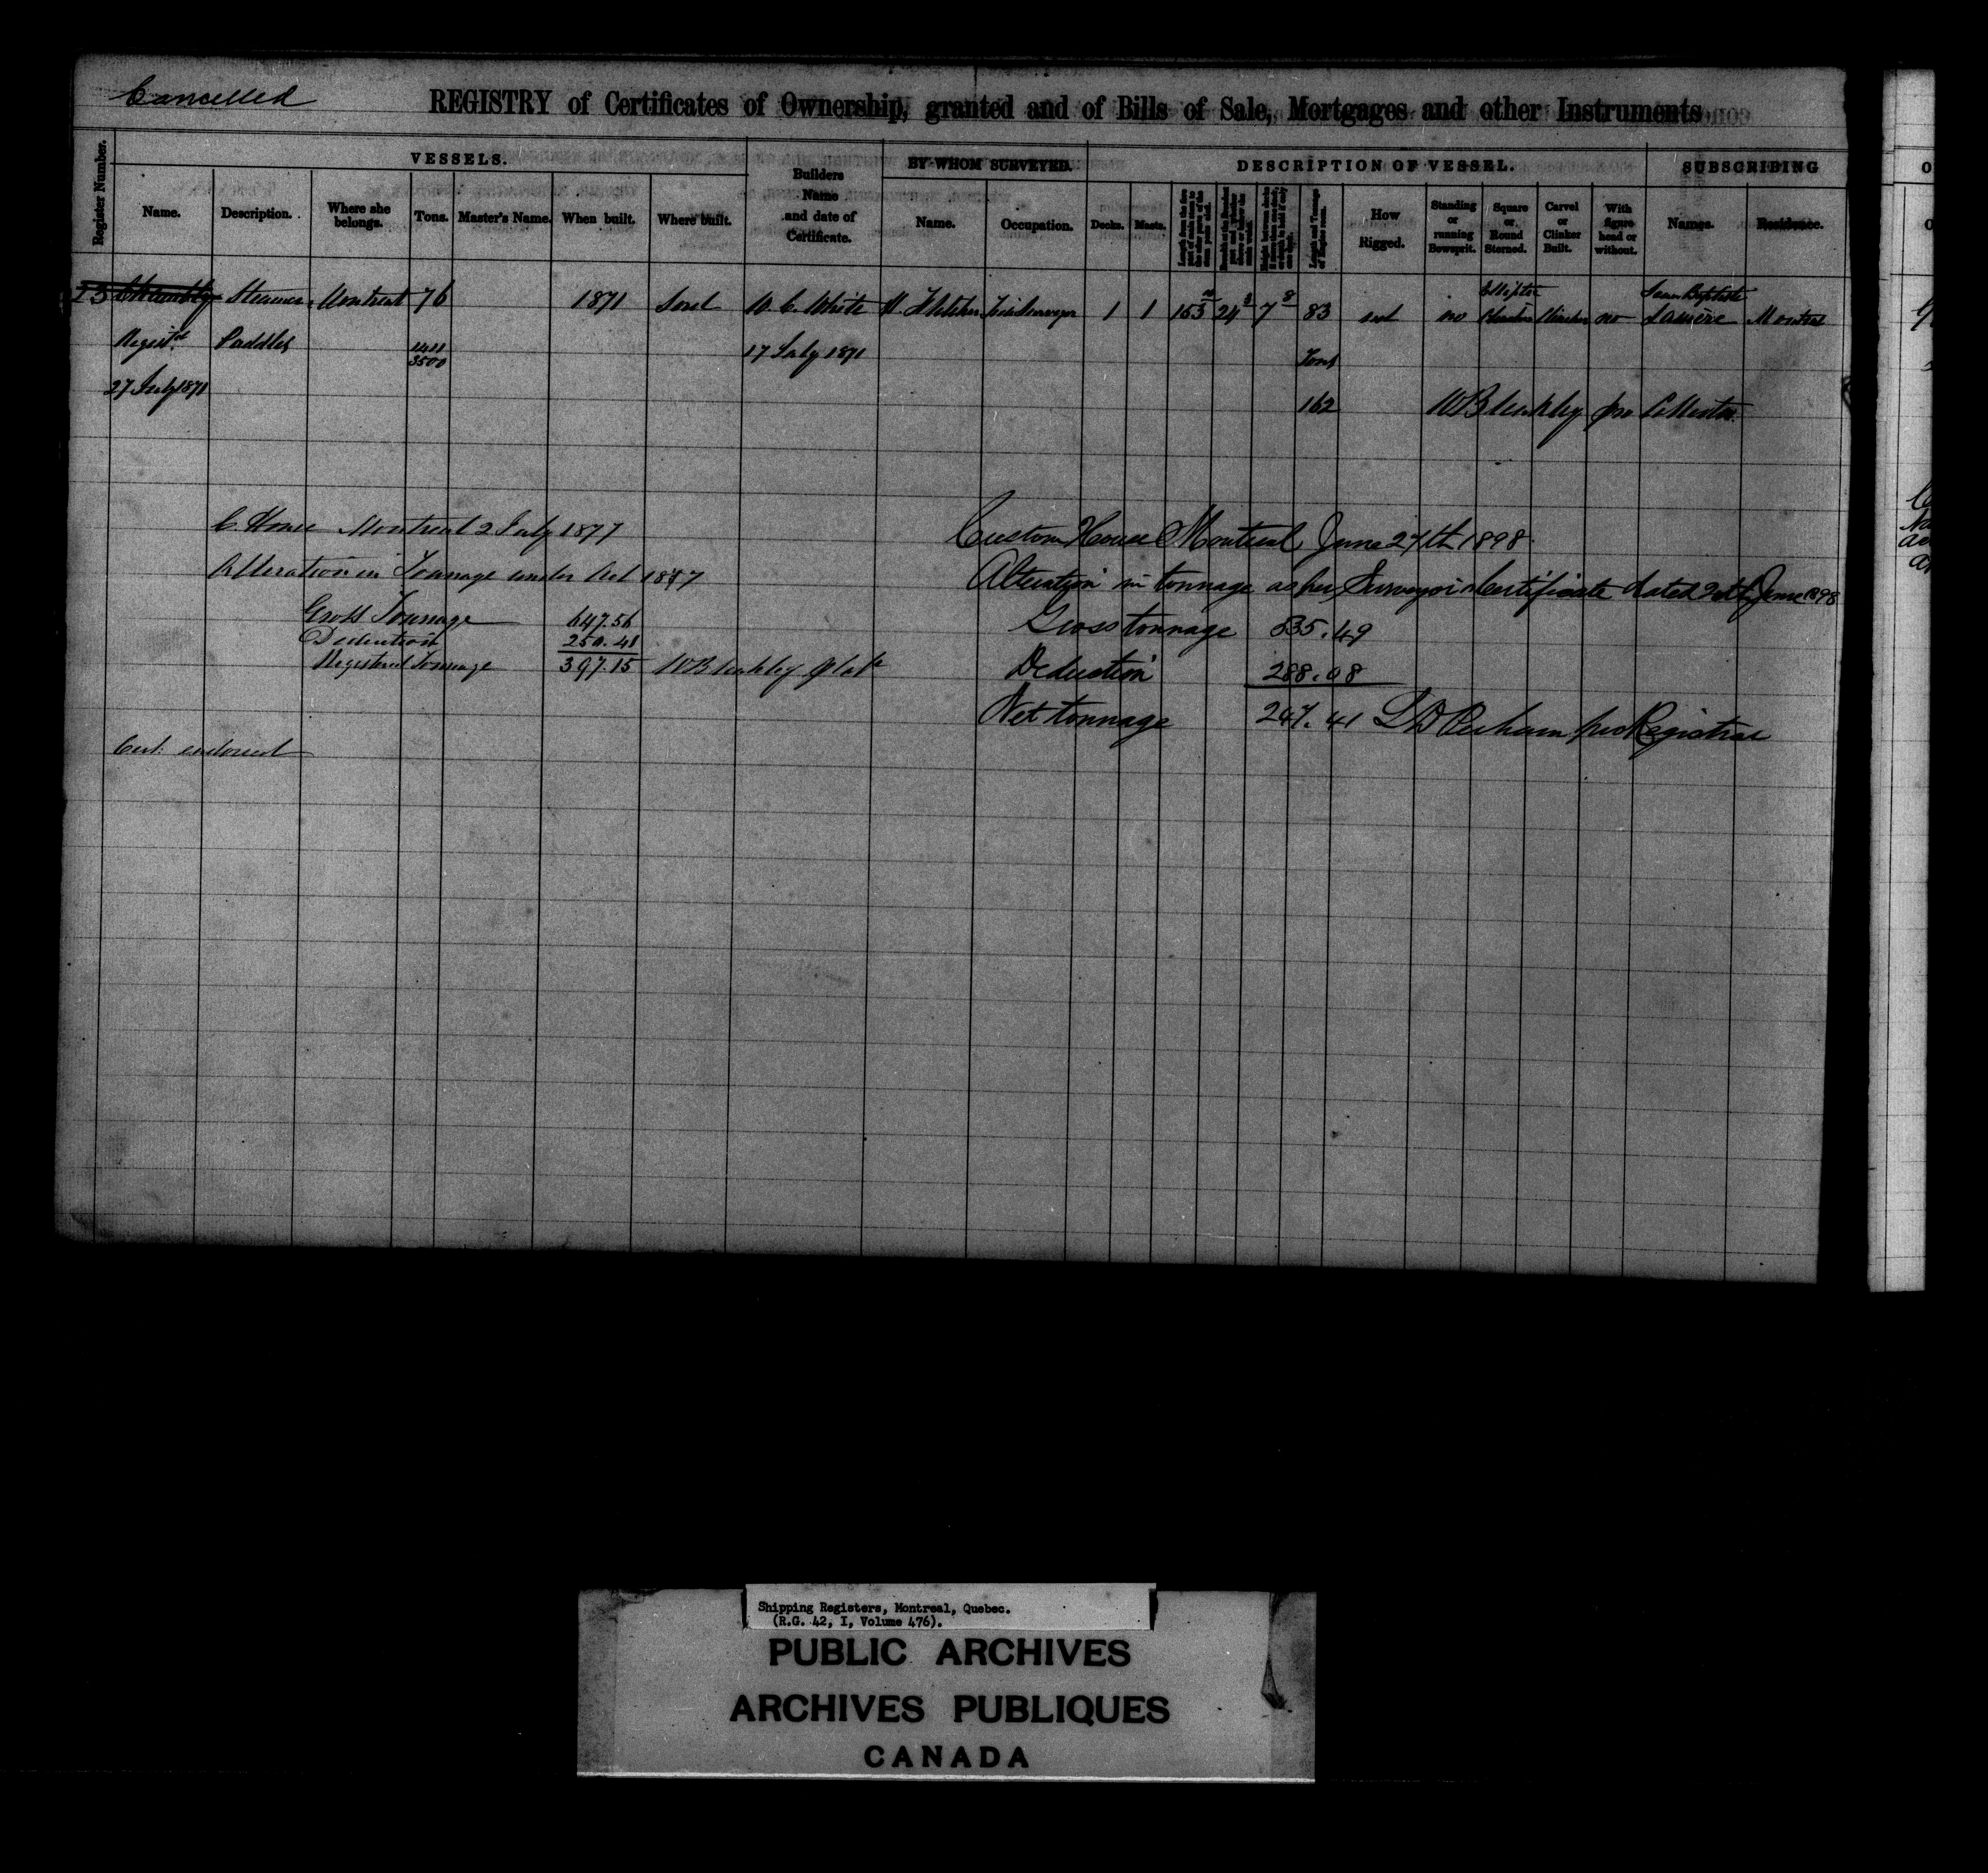 Cancelled
REGISTRY of Certificates of Ownership, granted and of Bills of Sale, Mortgages and other Instruments
Register Number.
VESSELS.
Builders Name and date of Certificate.
BY WHOM SURVEYED.
DESCRIPTION OF VESSEL.
SUBSCRIBING
Name. Description. Where she belongs. Tons. Master's Name. When built. Where built. Name. Occupation. Decks. Masts. How Rigged. Standing or running Bowsprit. Square or Round Sterned. Carvel or Clinker Built. With figure head or without. Names. Residence.
13 Chambly Steamer Montreal 76 1871 Sorel W. C. White 1 1 153 10 24 3 7 8 83 no Elliptic Clincher no Jean Baptiste Lamère Montreal
Regist'd Paddles 1411 3500 17 July 1871 Tons
27 July 1871 162 WBleakley pro Collector
C. House Montreal 2 July 1877
Alteration in Tonnage under Act 1877
Gross Tonnage 647.56
Deduction 250.41
Registered Tonnage 397.15 WBleakley
Cert: endorsed
Custom House Montreal June 27th 1898.
Alteration in tonnage as per Surveyor's Certificate dated June 1898
Gross tonnage 535.49
Deduction 288.08
Net tonnage 247.41 pro Registrar
Shipping Registers, Montreal, Quebec.
(R.G. 42, I, Volume 476).
PUBLIC ARCHIVES
ARCHIVES PUBLIQUES
CANADA